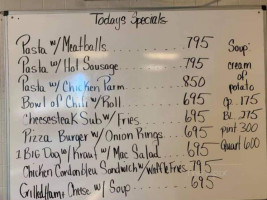 Todays Specials
Pasta w/ Meatballs.......... 795
Pasta w/ Hot Sausage........ 795
Pasta w/ Chicken Parm....... 850
Bowl of Chili w/ Roll....... 695
Cheesesteak Sub w/ Fries.... 695
Pizza Burger w/ Onion Rings. 695
1 BIG Dog w/ Kraut w/ Mac Salad... 695
Chicken Cordon bleu Sandwich w/ Waffle Fries 795
Grilled Ham & Cheese w/ Soup..... 695
Soup
cream
of
potato
Cp. 175
BL. 375
pint 300
Quart 600